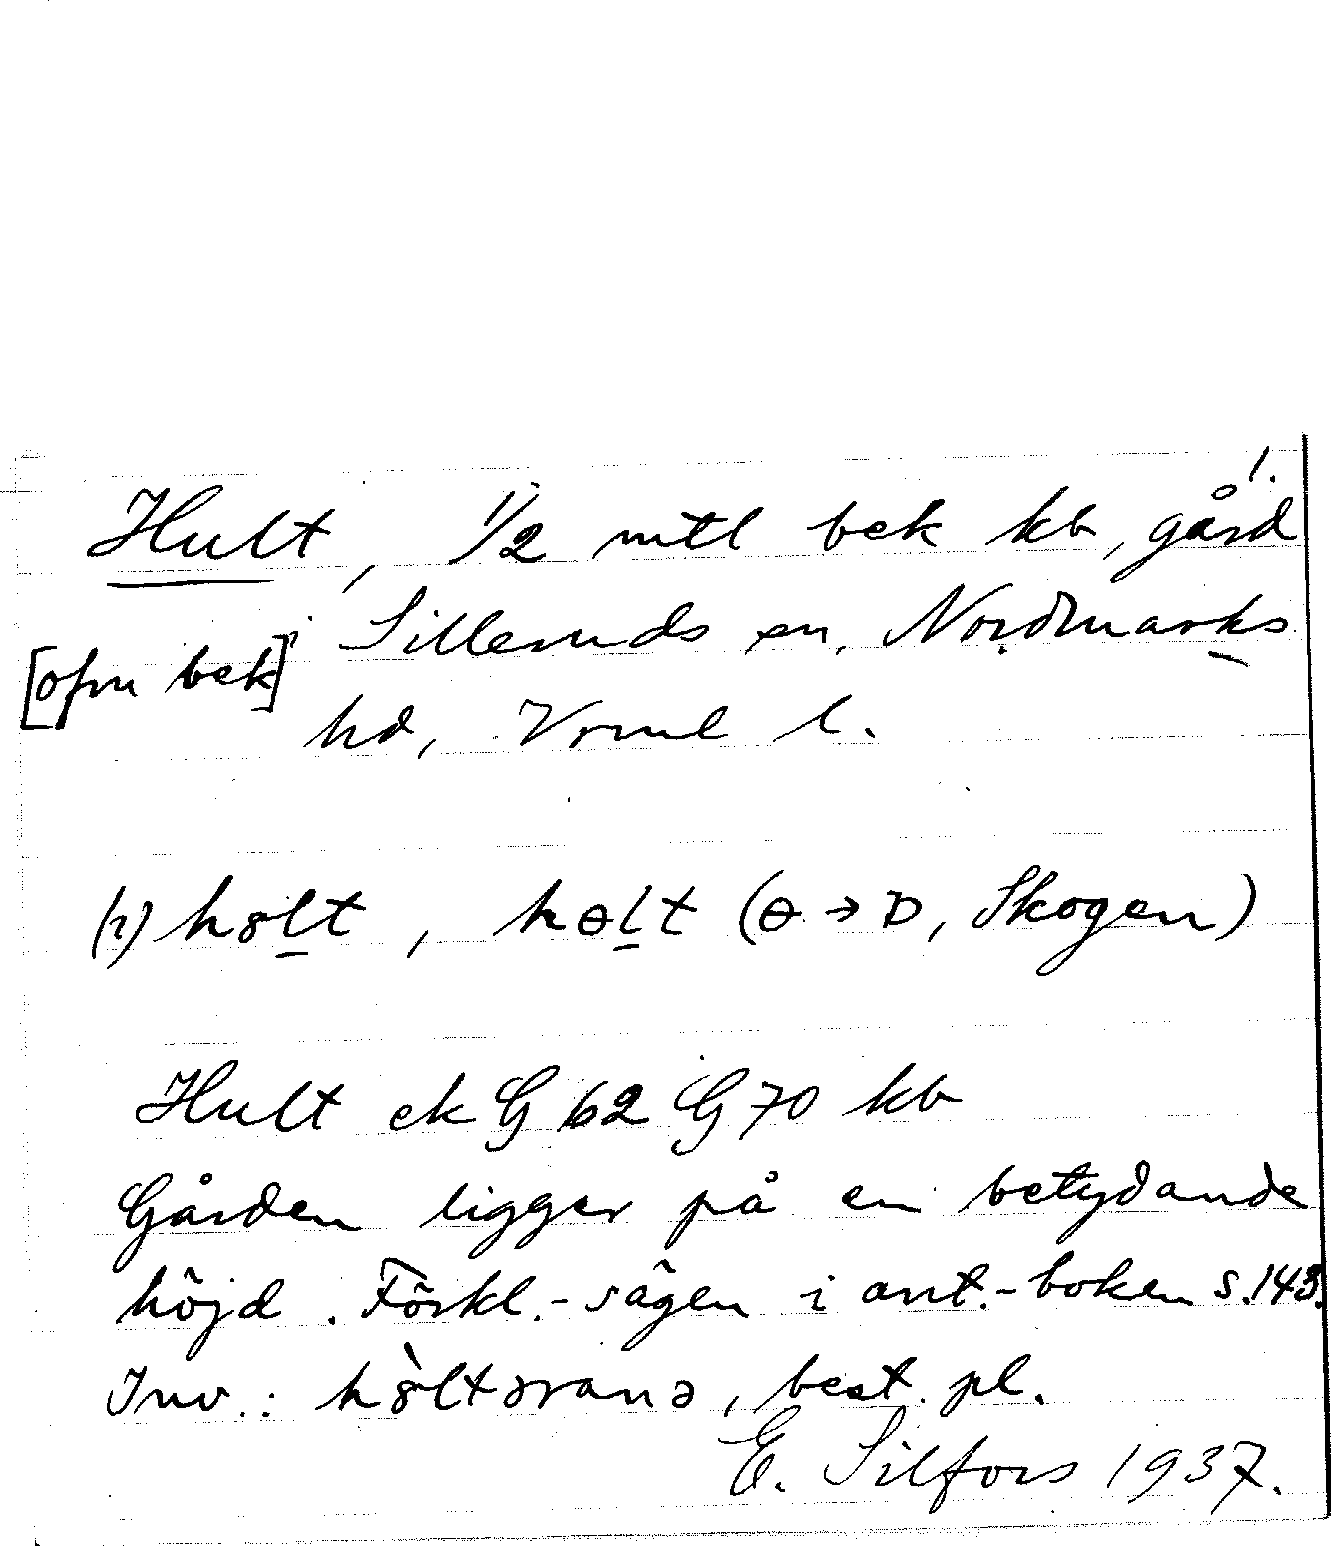 1.
Hult, 1/2 mtl bek kb, gård
i Silleruds sn, Nordmarks
[ofvn bek]
hd, Vrml l.
(i) hɷlt, hɵlt (ɵ → ɒ, Skogen)
Hult ek G 62 G 70 kb
Gården ligger på en betydande
höjd. Förkl.-sägen i ant.-boken s. 143.
Inv.: hɷ̀ltərana, best. pl.
E. Silfors 1937.